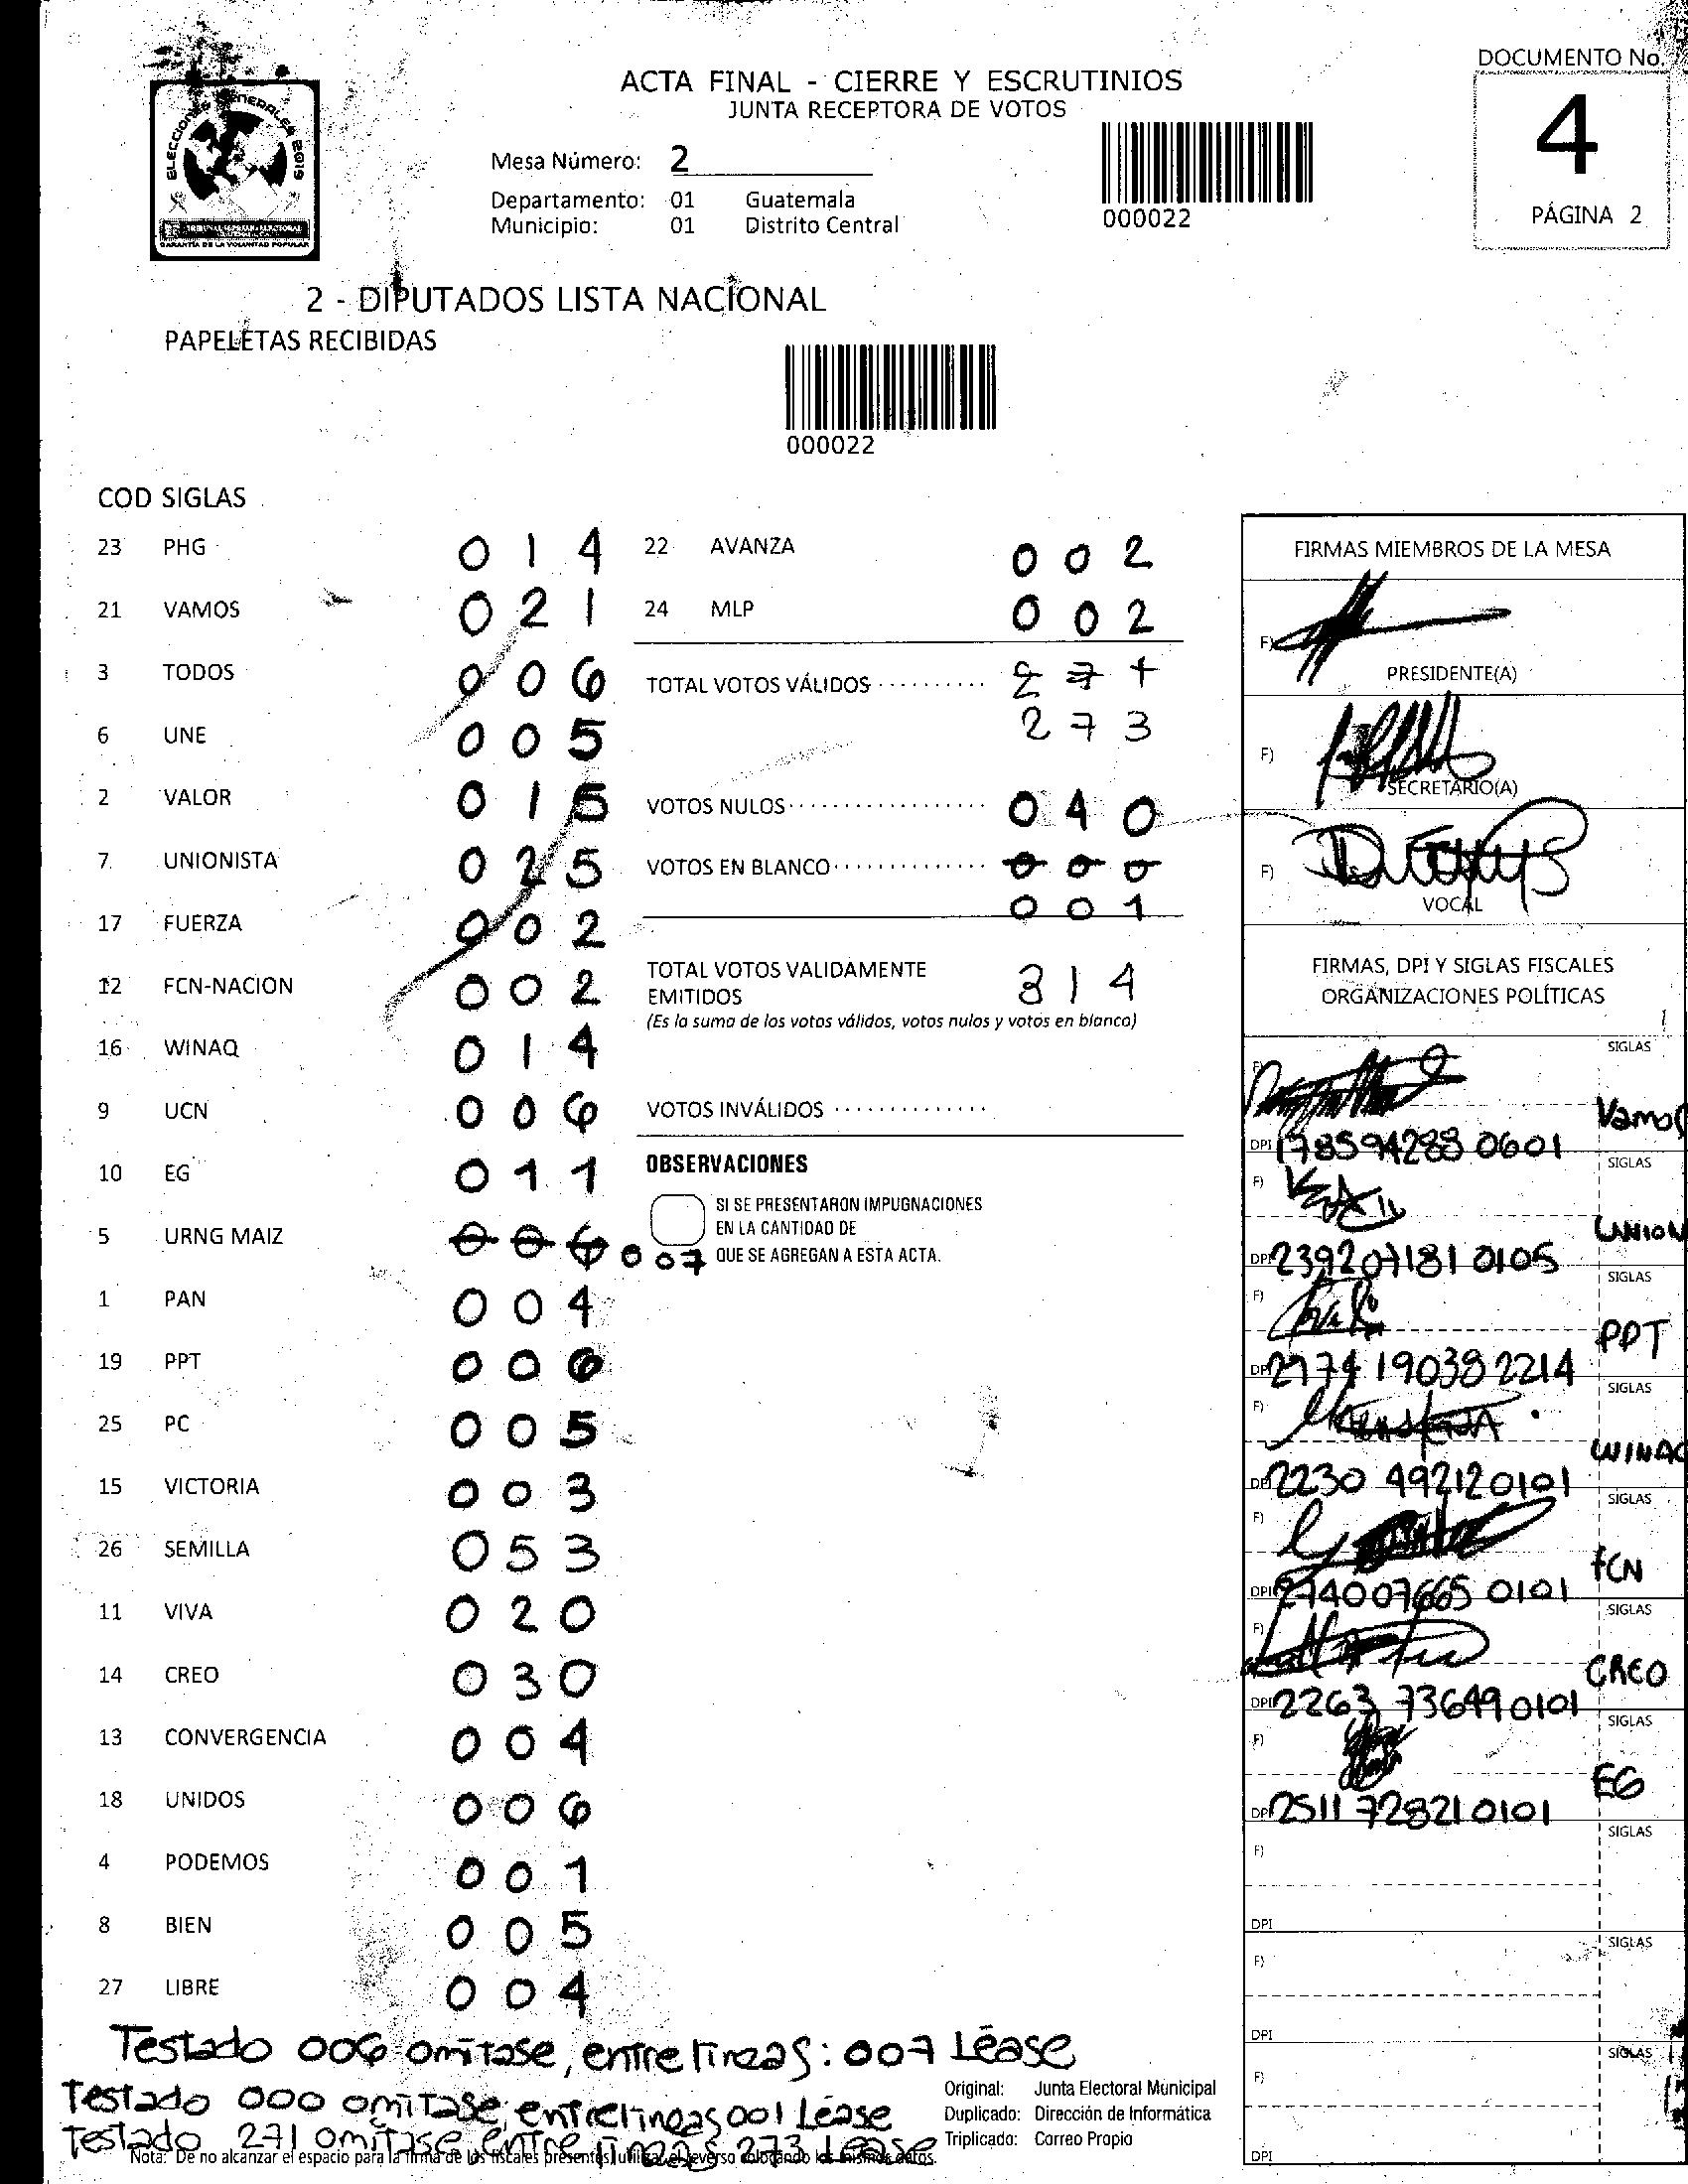 DOCUMENTO No.
4
PÁGINA 2
ACTA FINAL - CIERRE Y ESCRUTINIOS
JUNTA RECEPTORA DE VOTOS
ELECCIONES GENERALES 2019
TRIBUNAL SUPREMO ELECTORAL
GARANTÍA DE LA VOLUNTAD POPULAR
Mesa Número: 2
Departamento: 01 Guatemala
Municipio: 01 Distrito Central
000022
2 - DIPUTADOS LISTA NACIONAL
PAPELETAS RECIBIDAS
000022
COD SIGLAS
23 PHG 0 1 4
21 VAMOS 0 2 1
3 TODOS 0 0 6
6 UNE 0 0 5
2 VALOR 0 1 5
7 UNIONISTA 0 2 5
17 FUERZA 0 0 2
12 FCN-NACION 0 0 2
16 WINAQ 0 1 4
9 UCN 0 0 6
10 EG 0 1 1
5 URNG MAIZ 0 0 6 0 0 7
1 PAN 0 0 4
19 PPT 0 0 6
25 PC 0 0 5
15 VICTORIA 0 0 3
26 SEMILLA 0 5 3
11 VIVA 0 2 0
14 CREO 0 3 0
13 CONVERGENCIA 0 0 4
18 UNIDOS 0 0 6
4 PODEMOS 0 0 1
8 BIEN 0 0 5
27 LIBRE 0 0 4
22 AVANZA 0 0 2
24 MLP 0 0 2
TOTAL VOTOS VÁLIDOS .......... 2 7 1
2 7 3
VOTOS NULOS .................. 0 4 0
VOTOS EN BLANCO .............. 0 0 0
0 0 1
TOTAL VOTOS VALIDAMENTE
EMITIDOS 3 1 4
(Es la suma de los votos válidos, votos nulos y votos en blanco)
VOTOS INVÁLIDOS ..............
OBSERVACIONES
SI SE PRESENTARON IMPUGNACIONES
EN LA CANTIDAD DE
QUE SE AGREGAN A ESTA ACTA.
FIRMAS MIEMBROS DE LA MESA
F)
PRESIDENTE(A)
F)
SECRETARIO(A)
F)
VOCAL
FIRMAS, DPI Y SIGLAS FISCALES
ORGANIZACIONES POLÍTICAS
F) SIGLAS
Vamos
DPI 178594283 0601
F) SIGLAS
UNION
DPI 239207181 0105
F) SIGLAS
PPT
DPI 2174 19038 2214
F) SIGLAS
WINAQ
DPI 2230 49212 0101
F) SIGLAS
FCN
DPI 274007665 0101
F) SIGLAS
CREO
DPI 2263 73649 0101
F) SIGLAS
EG
DPI 2511 72821 0101
F) SIGLAS
DPI
F) SIGLAS
DPI
F) SIGLAS
DPI
Testado 006 omitase, entre lineas: 007 Léase
Testado 000 omitase, entrelineas 001 Léase
Testado 271 omitase entre lineas 273 Léase
Original: Junta Electoral Municipal
Duplicado: Dirección de Informática
Triplicado: Correo Propio
Nota: De no alcanzar el espacio para la firma de los fiscales presentes, utilizar el reverso colocando los mismos datos.